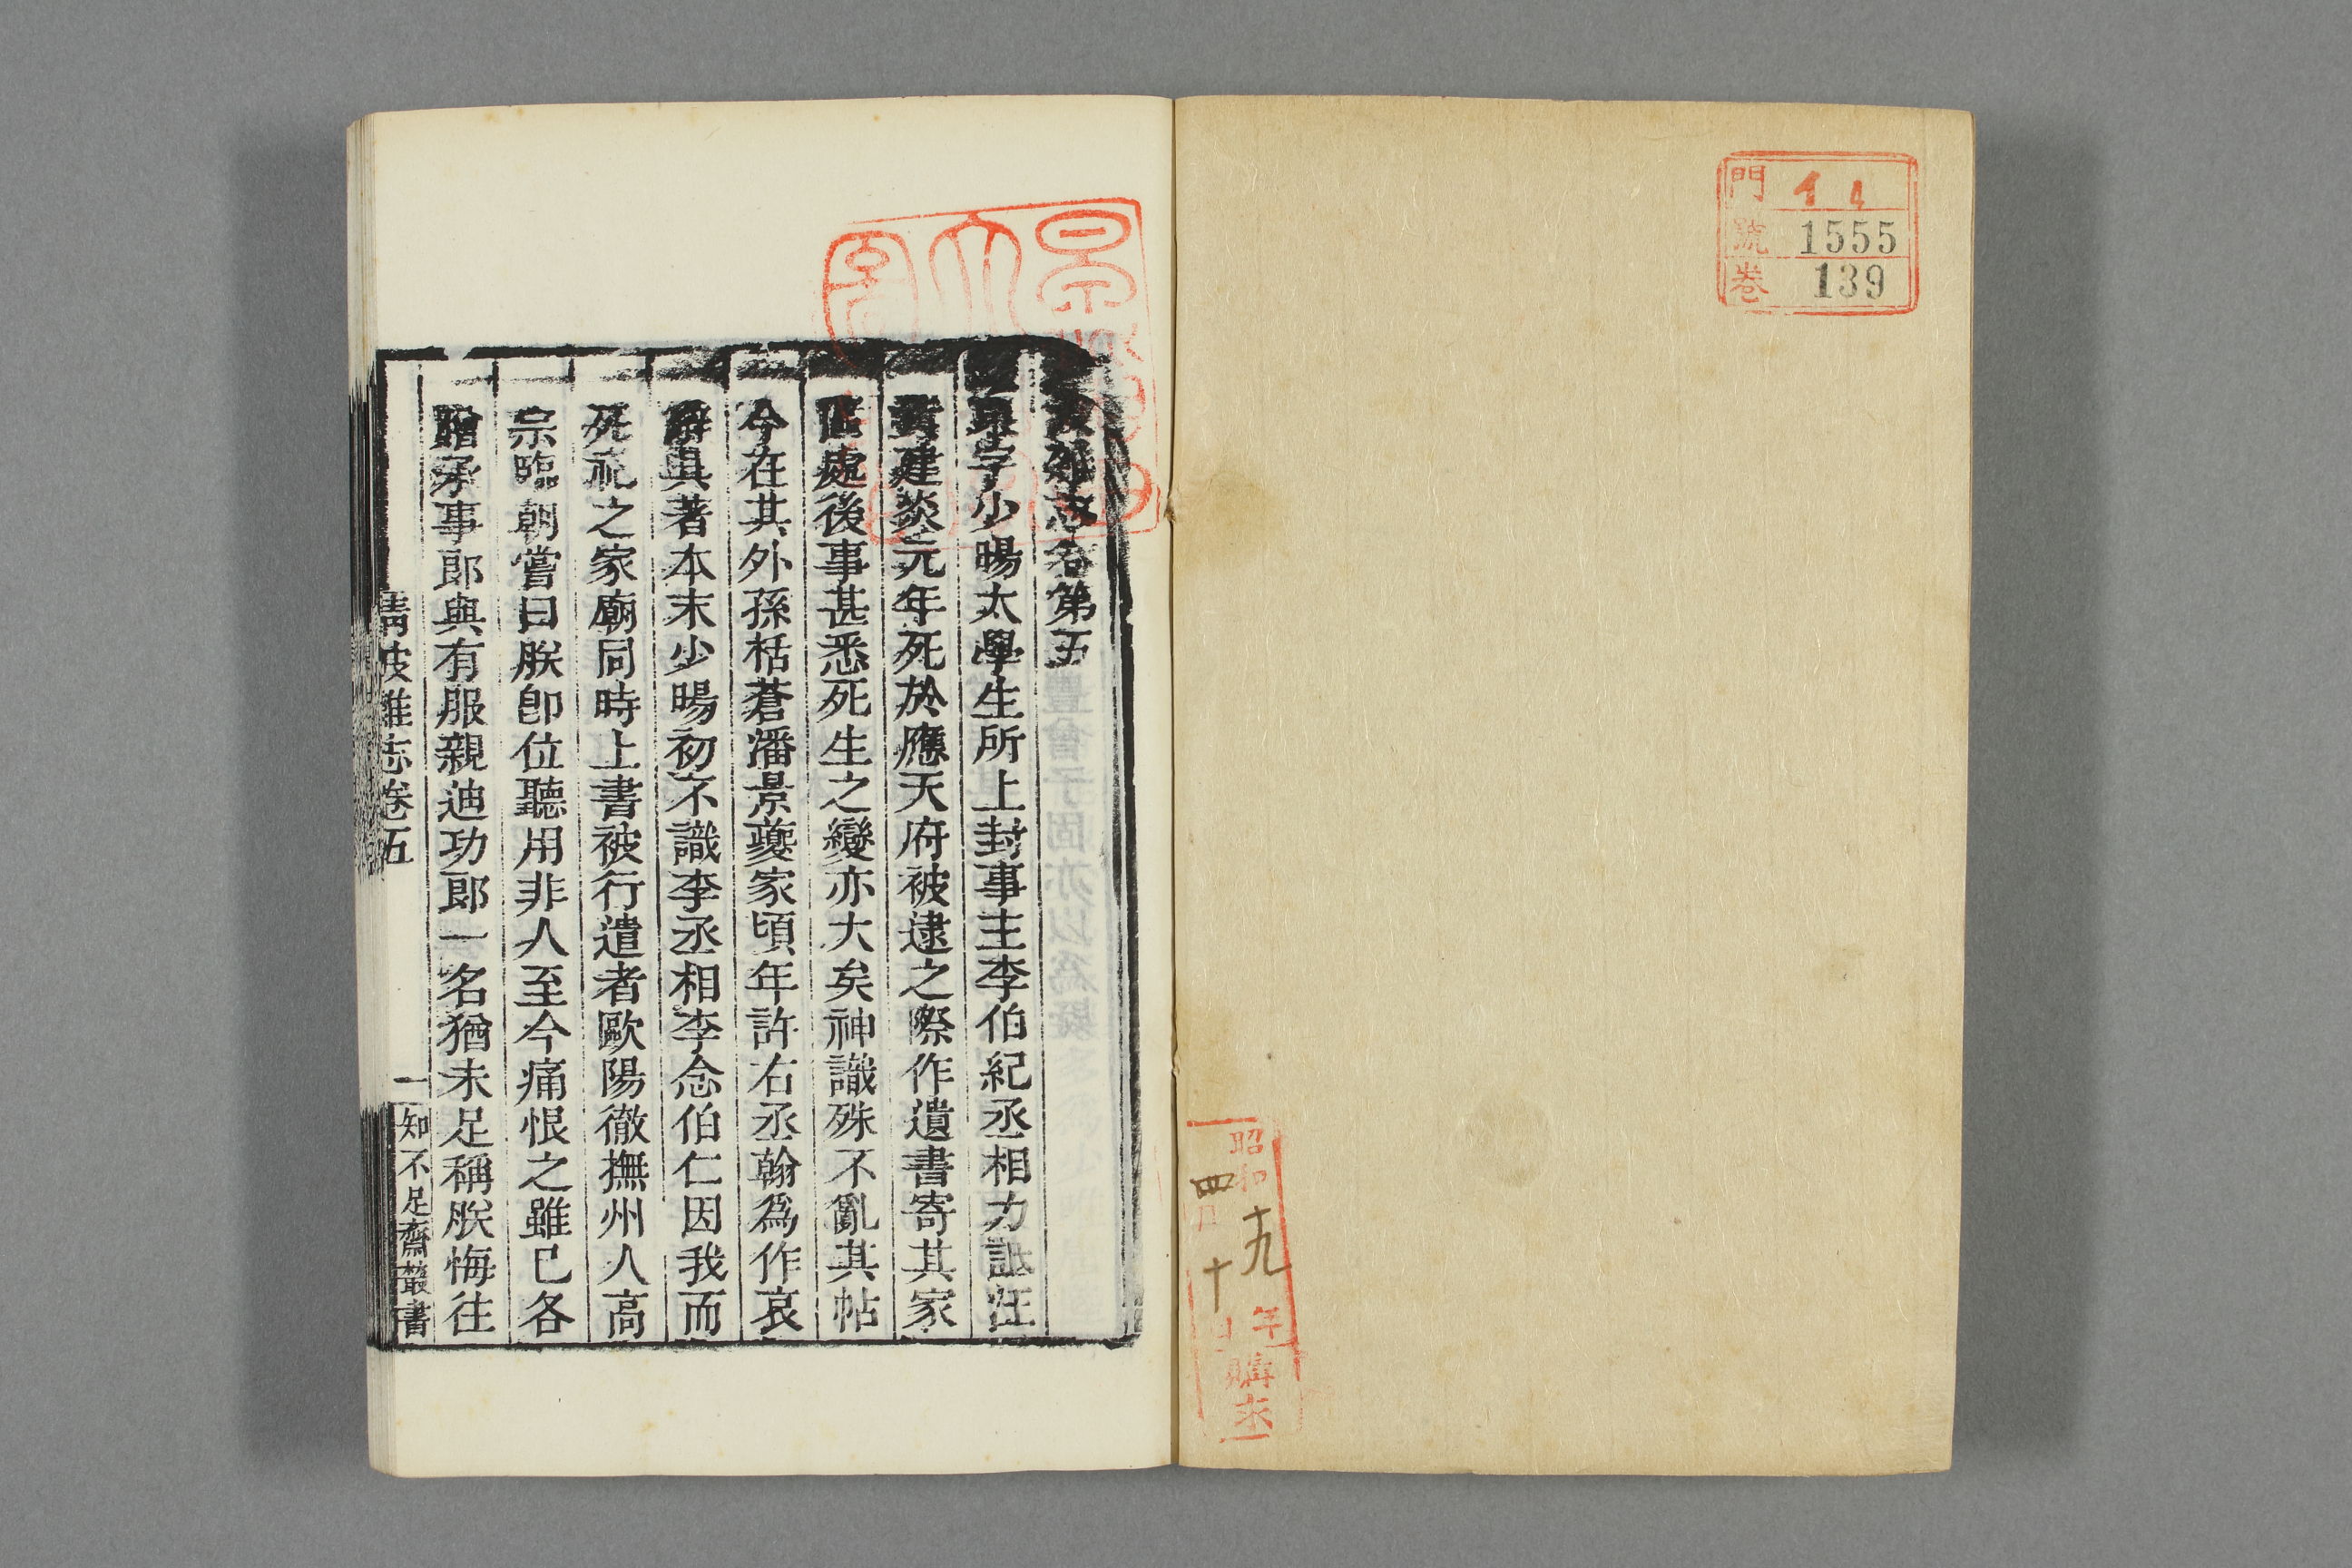 門 14
號 1555
巻 139
昭和十九年
四月十日
購求
波雜志卷第五
東字少暘太學生所上封事主李伯紀丞相力詆汪
黃建炎元年死於應天府被逮之際作遺書寄其家
區處後事甚悉死生之變亦大矣神識殊不亂其帖
今在其外孫栝蒼潘景夔家頃年許右丞翰爲作哀
辭具著本末少暘初不識李丞相李念伯仁因我而
死祀之家廟同時上書被行遣者歐陽徹撫州人高
宗臨朝嘗曰朕卽位聽用非人至今痛恨之雖已各
贈承事郎與有服親迪功郎一名猶未足稱朕悔往
清波雜志卷五
一
知不足齋叢書